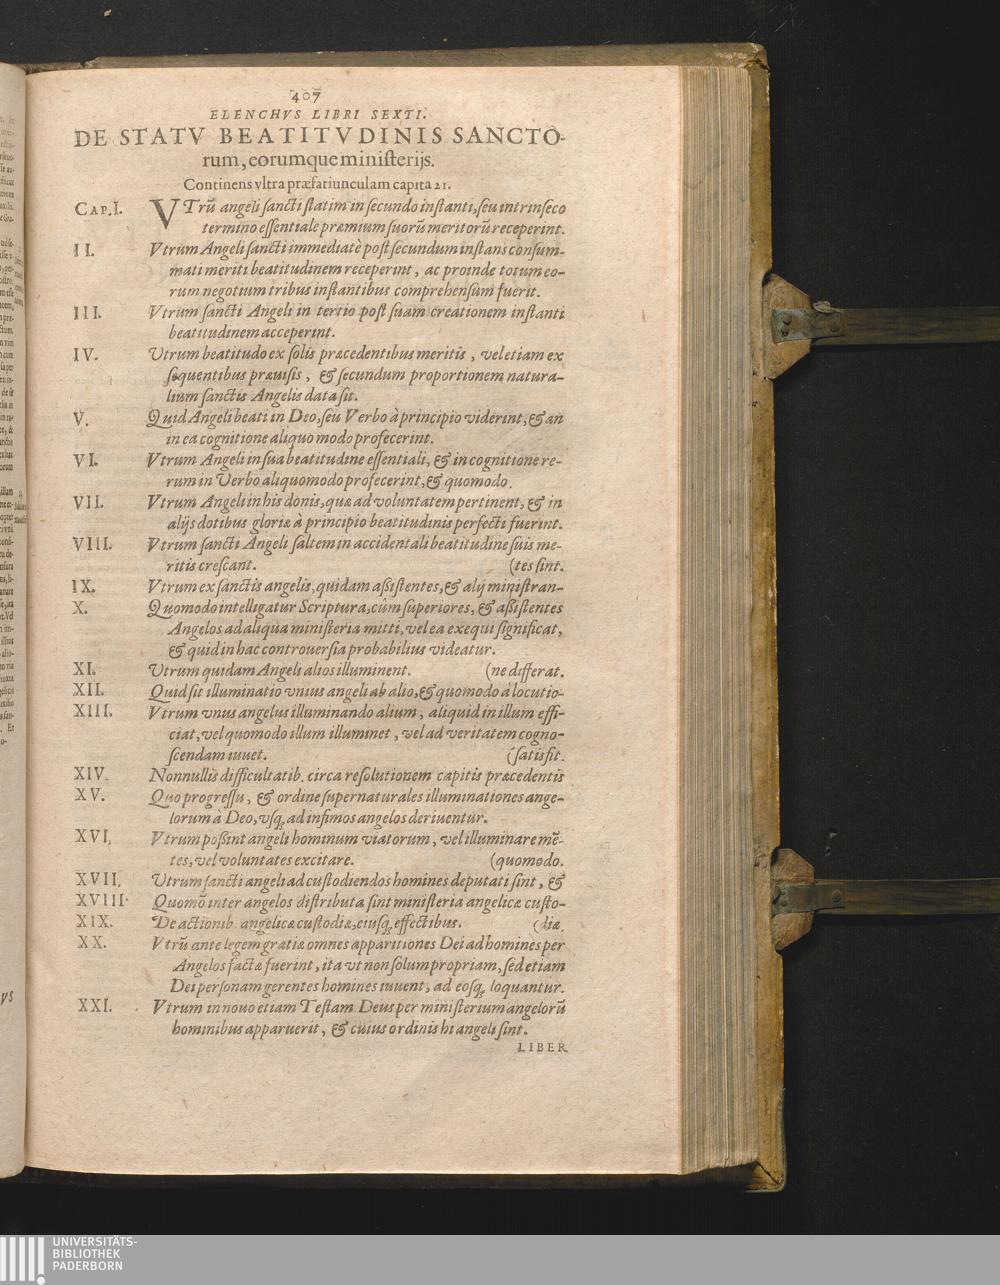 407
ELENCHVS LIBRI SEXTI.
DE STATV BEATITVDINIS SANCTO-
rum, eorumque ministerijs.
Continens vltra præfatiunculam capita 21.
CAP. I. VTrū angeli sancti statim in secundo instanti, seu intrinseco
termino essentiale præmium suorū meritorū receperint.
II. Vtrum Angeli sancti immediatè post secundum instans consum-
mati meriti beatitudinem receperint, ac proinde totum eo-
rum negotium tribus instantibus comprehensum fuerit.
III. Vtrum sancti Angeli in tertio post suam creationem instanti
beatitudinem acceperint.
IV. Vtrum beatitudo ex solis præcedentibus meritis, vel etiam ex
sequentibus præuisis, & secundum proportionem natura-
lium sanctis Angelis data sit.
V. Quid Angeli beati in Deo, seu Verbo à principio viderint, & an
in ea cognitione aliquo modo profecerint.
VI. Vtrum Angeli in sua beatitudine essentiali, & in cognitione re-
rum in Verbo aliquomodo profecerint, & quomodo.
VII. Vtrum Angeli in his donis, quæ ad voluntatem pertinent, & in
alijs dotibus gloriæ à principio beatitudinis perfecti fuerint.
VIII. Vtrum sancti Angeli saltem in accidentali beatitudine suis me-
ritis crescant. (tes sint.
IX. Vtrum ex sanctis angelis, quidam assistentes, & alij ministran-
X. Quomodo intelligatur Scriptura, cûm superiores, & assistentes
Angelos ad aliqua ministeria mitti, vel ea exequi significat,
& quid in hac controuersia probabilius videatur.
XI. Vtrum quidam Angeli alios illuminent. (ne differat.
XII. Quid sit illuminatio vnius angeli ab alio, & quomodo à locutio-
XIII. Vtrum vnus angelus illuminando alium, aliquid in illum effi-
ciat, vel quomodo illum illuminet, vel ad veritatem cogno-
scendam iuuet. (satisfit.
XIV. Nonnullis difficultatib. circa resolutionem capitis præcedentis
XV. Quo progressu, & ordine supernaturales illuminationes ange-
lorum à Deo, vsq; ad infimos angelos deriuentur.
XVI. Vtrum possint angeli hominum viatorum, vel illuminare mē-
tes, vel voluntates excitare. (quomodo.
XVII. Vtrum sancti angeli ad custodiendos homines deputati sint, &
XVIII. Quomō inter angelos distributa sint ministeria angelicæ custo-
XIX. De actionib. angelicæ custodiæ, eiusq; effectibus. (diæ.
XX. Vtrū ante legem gratiæ omnes apparitiones Dei ad homines per
Angelos factæ fuerint, ita vt non solum propriam, sed etiam
Dei personam gerentes homines iuuent, ad eosq; loquantur.
XXI. Vtrum in nouo etiam Testam. Deus per ministerium angelorū
hominibus apparuerit, & cuius ordinis hi angeli sint.
LIBER
UNIVERSITÄTS-
BIBLIOTHEK
PADERBORN